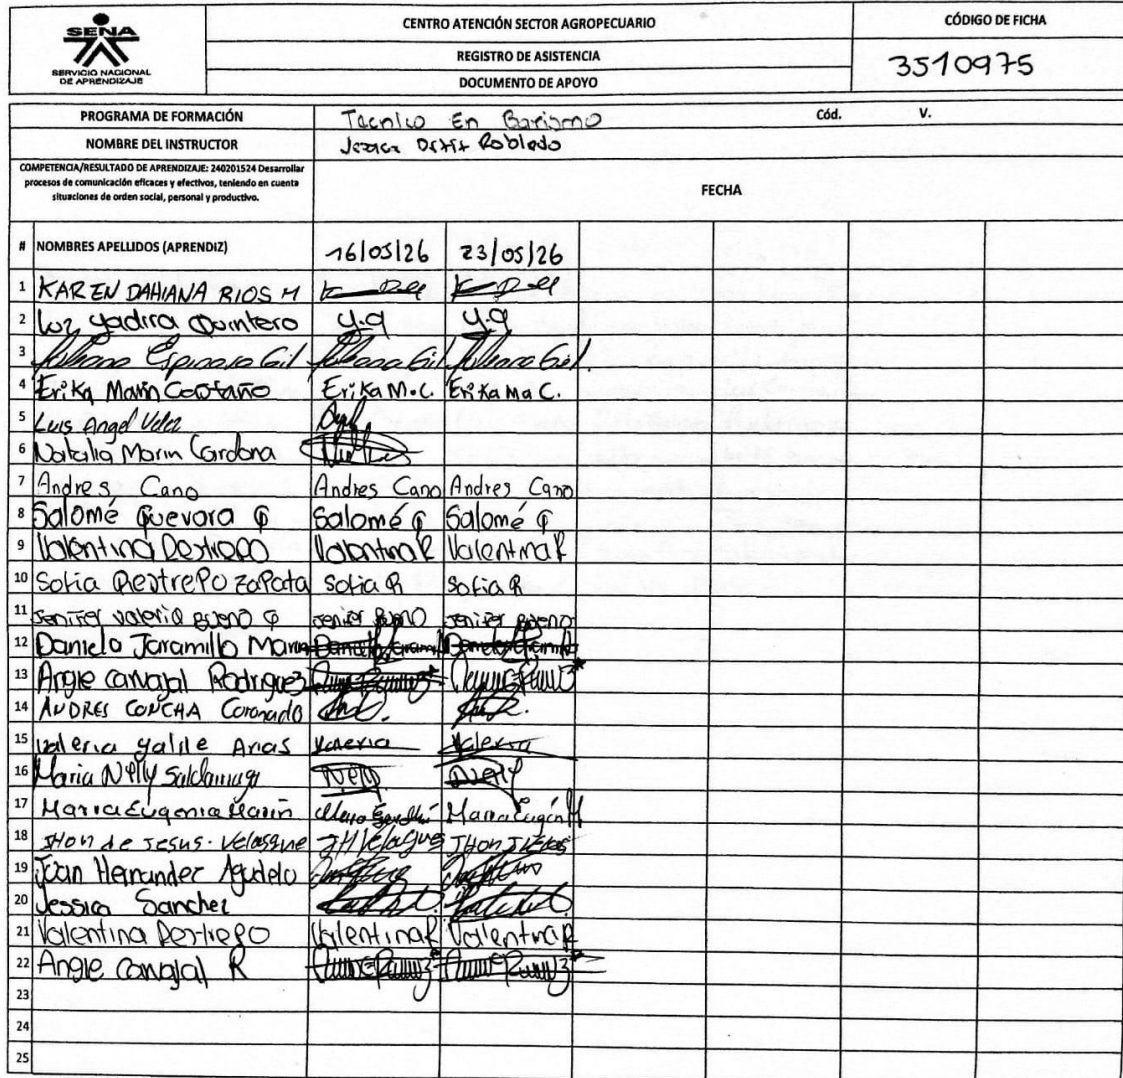 SENA
SERVICIO NACIONAL
DE APRENDIZAJE
CENTRO ATENCIÓN SECTOR AGROPECUARIO
REGISTRO DE ASISTENCIA
DOCUMENTO DE APOYO
CÓDIGO DE FICHA
3510975
PROGRAMA DE FORMACIÓN Tecnico En Barismo Cód. V.
NOMBRE DEL INSTRUCTOR Ortiz Robledo
COMPETENCIA/RESULTADO DE APRENDIZAJE: 240201524 Desarrollar
procesos de comunicación eficaces y efectivos, teniendo en cuenta
situaciones de orden social, personal y productivo.
FECHA
# NOMBRES APELLIDOS (APRENDIZ) 16/05/26 23/05/26
1 KAREN DAHIANA RIOS M
2 Luz yadira Quintero y.q y.q
3 Espinosa Gil Gil Gil
4 Erika Marin Erika M.C. Erika Ma C.
5 Luis Angel Velez
6 Natalia Marin Cardona
7 Andres Cano Andres Cano Andres Cano
8 Salomé Guevara G Salomé G Salomé G
9 Valentina Restrepo Valentina R Valentina R
10 Sofia Restrepo Zapata Sofia R Sofia R
11 Jenifer valeria Bueno G Jenifer Bueno Jenifer Bueno
12 Daniela Jaramillo Marin Daniela Jaramillo Daniela Jaramillo
13 Angie carvajal Rodriguez
14 ANDRES CONCHA Coronado
15 valeria yalile Arias valeria Valeria
16 Maria Nelly Nelly Nelly
17 Maria Eugenia Marin Maria Eugen M
18 JHon de Jesus. Velasque JH Velasque JHon
19 Joan Hernandez Agudelo
20 Jessica Sanchez
21 Valentina Restrepo Valentina R Valentina R
22 Angie carvajal R
23
24
25